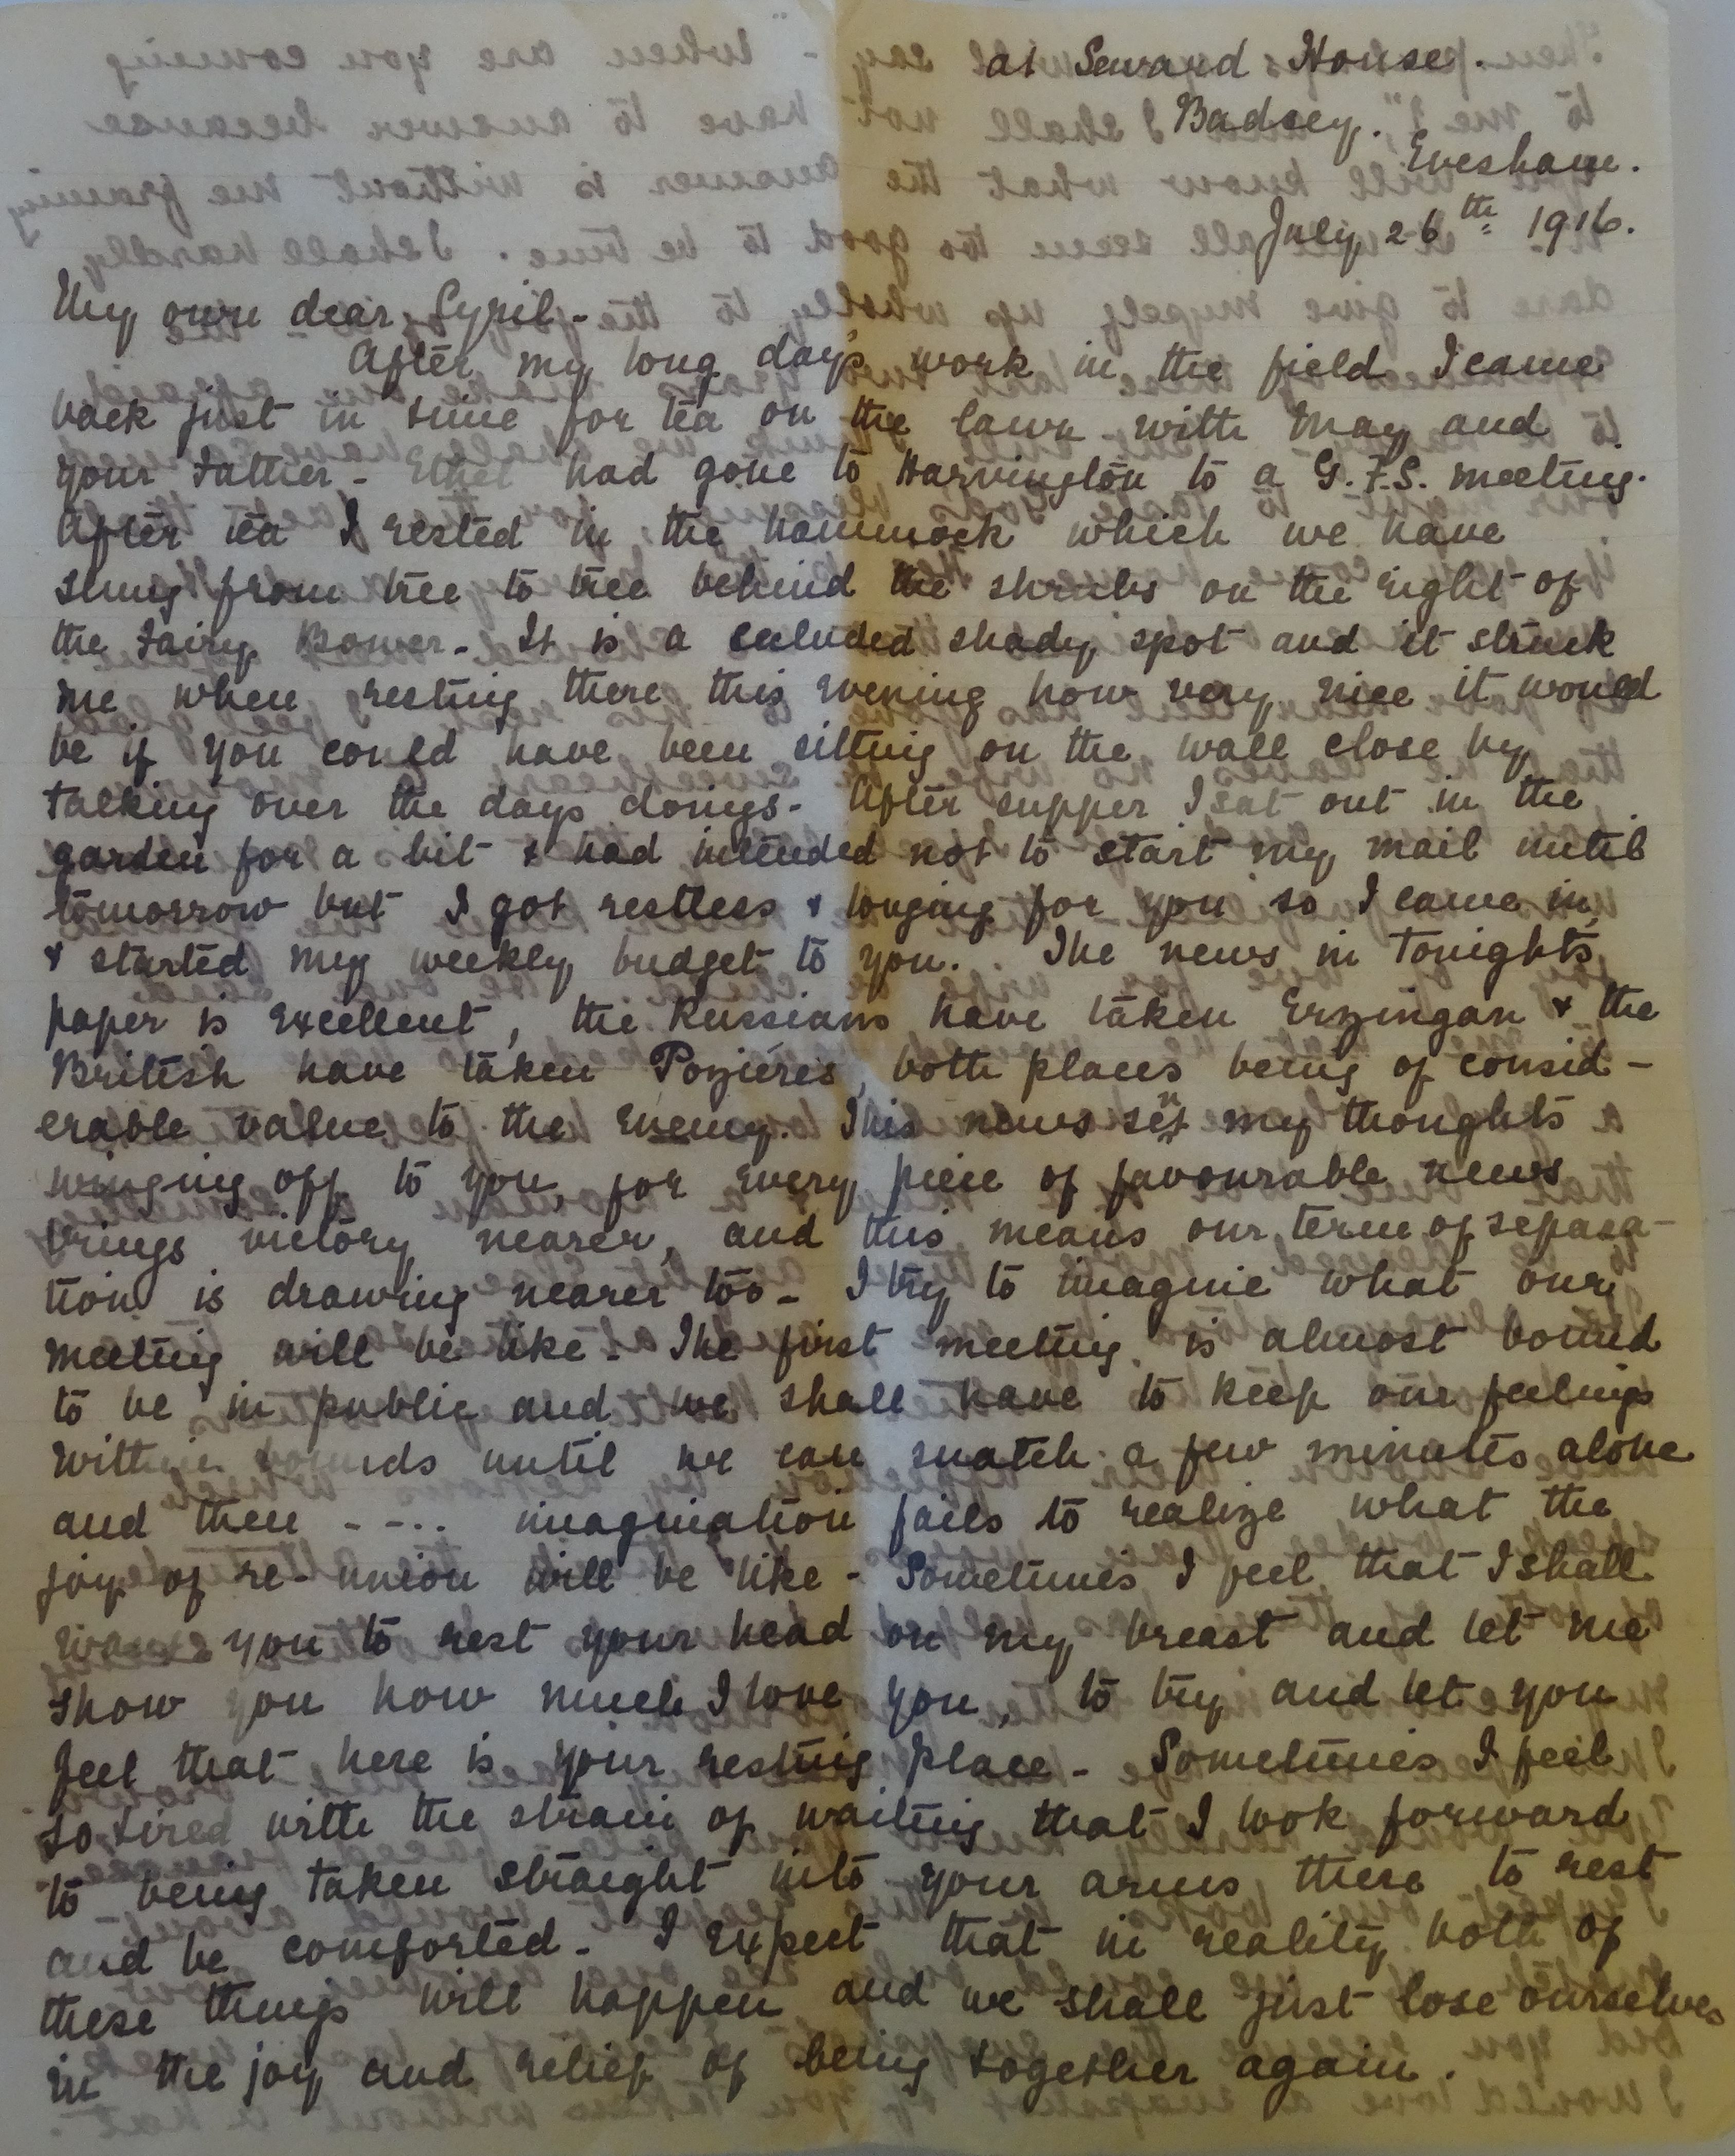 at Seward House.
Badsey.
Evesham.
July 26th 1916.
My own dear Cyril -
After my long day's work in the field I came
back just in time for tea on the lawn with May and
your Father - Ethel had gone to Harvington to a G.F.S. meeting.
After tea I rested in the hammock which we have
slung from tree to tree behind the shrubs on the right of
the Fairy Bower - It is a secluded shady spot and it struck
me when resting there this evening how very nice it would
be if you could have been sitting on the wall close by
talking over the days doings - After supper I sat out in the
garden for a bit & had intended not to start my mail until
tomorrow but I got restless & longing for you so I came in
& started my weekly budget to you. The news in tonights
paper is excellent, the Russians have taken Erzingan & the
British have taken Pozières, both places being of consid-
erable value to the enemy. This news set my thoughts
winging off to you, for every piece of favourable news
brings victory nearer, and this means our term of separa-
tion is drawing nearer too - I try to imagine what our
meeting will be like - The first meeting is almost bound
to be in public and we shall have to keep our feelings
within bounds until we can snatch a few minutes alone
and then - - . . imagination fails to realize what the
joy of re-union will be like - Sometimes I feel that I shall
want you to rest your head on my breast and let me
show you how much I love you, to try and let you
feel that here is your resting place - Sometimes I feel
so tired with the strain of waiting that I look forward
to being taken straight into your arms there to rest
and be comforted - I expect that in reality both of
these things will happen and we shall just lose ourselves
in the joy and relief of being together again.